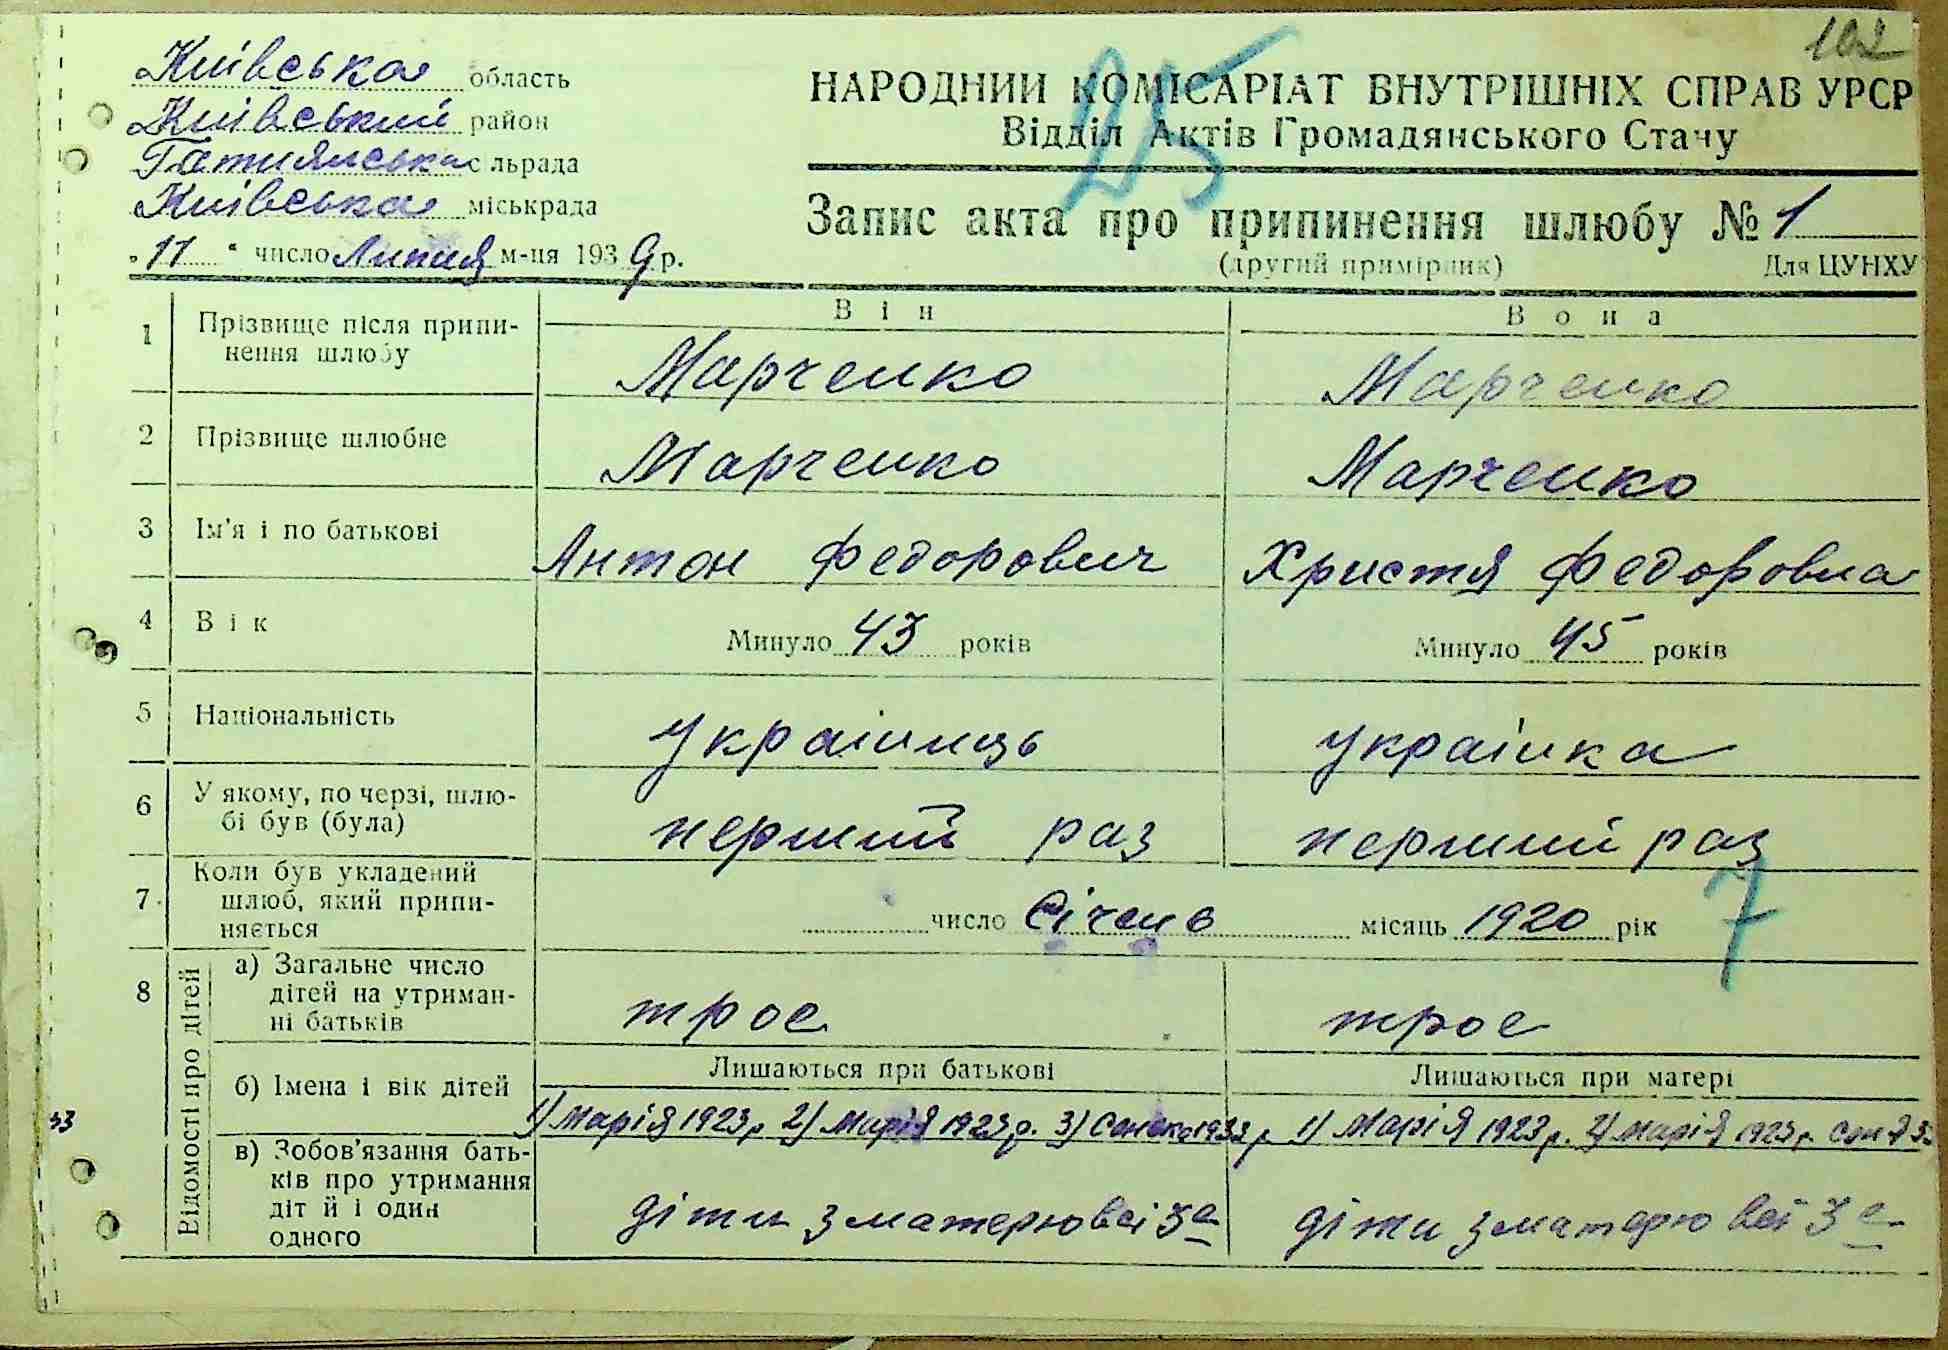 102
25
Київська область
Київський район
Гатнянська с льрада
Київська міськрада
"11" число Липня м-ця 1939 р.
НАРОДНИЙ КОМІСАРІАТ ВНУТРІШНІХ СПРАВ УРСР
Відділ Актів Громадянського Стану
Запис акта про припинення шлюбу № 1
(другий примірник) Для ЦУНХУ
Він Вона
1 Прізвище після припи-
нення шлюбу
Марченко Марченко
2 Прізвище шлюбне Марченко Марченко
3 Ім'я і по батькові Антон Федорович Христя Федоровна
4 Вік Минуло 43 років Минуло 45 років
5 Національність українць українка
6 У якому, по черзі, шлю-
бі був (була)
перший раз перший раз
7 Коли був укладений
шлюб, який припи-
няється
число Січень місяць 1920 рік
7
8 Відомості про дітей
а) Загальне число
дітей на утриман-
ні батьків
трое трое
б) Імена і вік дітей
Лишаються при батькові Лишаються при матері
1) Марія 1923 р 2) Марія 1923 р. 3) 1933 р 1) Марія 1923 р. 2) Марія 1923 р.
в) Зобов'язання бать-
ків про утримання
діт й і один
одного
діти з матерю всі 3є діти з матерю всі 3є